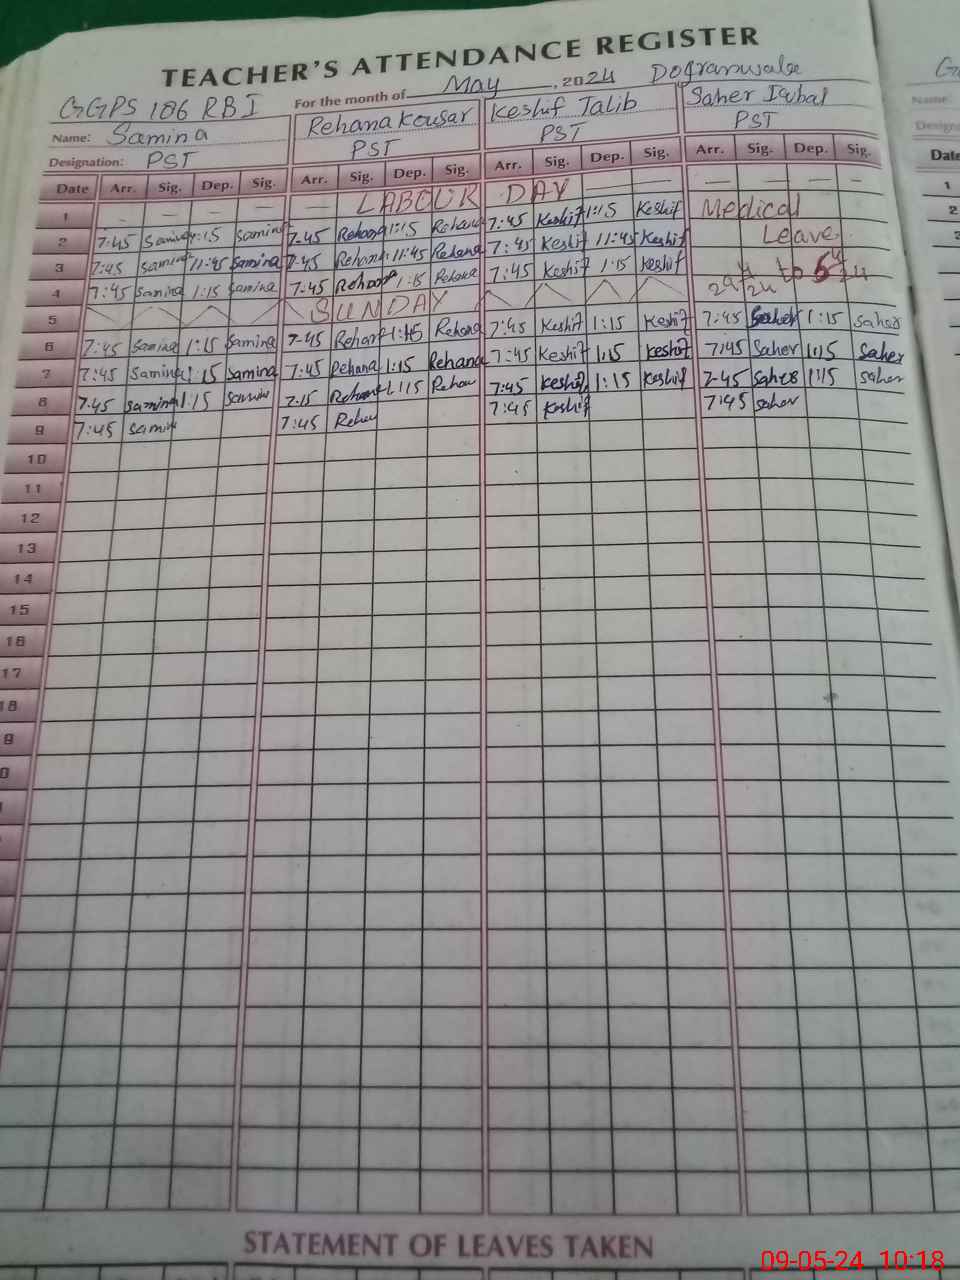 TEACHER'S ATTENDANCE REGISTER
GGPS 106 RBI For the month of May, 2024 Dogranwala
Name: Samina Rehana Kousar Keshif Talib Saher Iqbal
Designation: PST PST PST PST
Date Arr. Sig. Dep. Sig. Arr. Sig. Dep. Sig. Arr. Sig. Dep. Sig. Arr. Sig. Dep. Sig.
1 LABOUR DAY
2 7:45 Samina 1:15 Samina 7:45 Rehana 1:15 Rehana 7:45 Keshif 1:15 Keshif Medical
3 7:45 Samina 11:45 Samina 7:45 Rehana 11:45 Rehana 7:45 Keshif 11:45 Keshif Leave
4 7:45 Samina 1:15 Samina 7:45 Rehana 1:15 Rehana 7:45 Keshif 1:15 Keshif to
5 SUNDAY
6 7:45 Samina 1:15 Samina 7:45 Rehana 1:15 Rehana 7:45 Keshif 1:15 Keshif 7:45 Saher 1:15 Saher
7 7:45 Samina 1:15 Samina 7:45 Rehana 1:15 Rehana 7:45 Keshif 1:15 Keshif 7:45 Saher 1:15 Saher
8 7:45 Samina 1:15 Samina 7:15 Rehana 1:15 Rehan 7:45 Keshif 1:15 Keshif 7:45 Saher 1:15 Saher
9 7:45 Samin 7:45 Rehan 7:45 Keshif 7:45 Saher
10
11
12
13
14
15
16
17
18
9
0
STATEMENT OF LEAVES TAKEN
09-05-24 10:18
Name:
Date
1
2